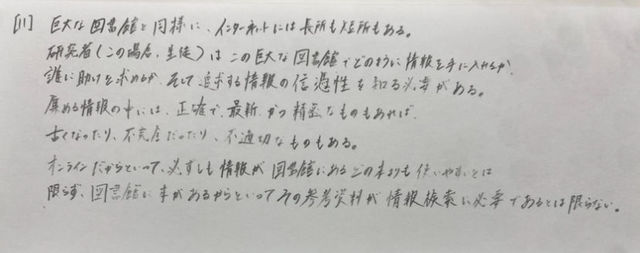 [11] 巨大な図書館と同様に、インターネットには長所も短所もある。
研究者(この場合、生徒)はこの巨大な図書館でどのように情報を手に入れるか、
誰に助けを求めるか、そして追求する情報の信憑性を知る必要がある。
集める情報の中には、正確で、最新、かつ精密なものもあれば、
古くなったり、不完全だったり、不適切なものもある。
オンラインだからといって、必ずしも情報が図書館にあるどの本よりも使いやすいとは
限らず、図書館に本があるからといってその参考資料が情報検索に必要であるとは限らない。